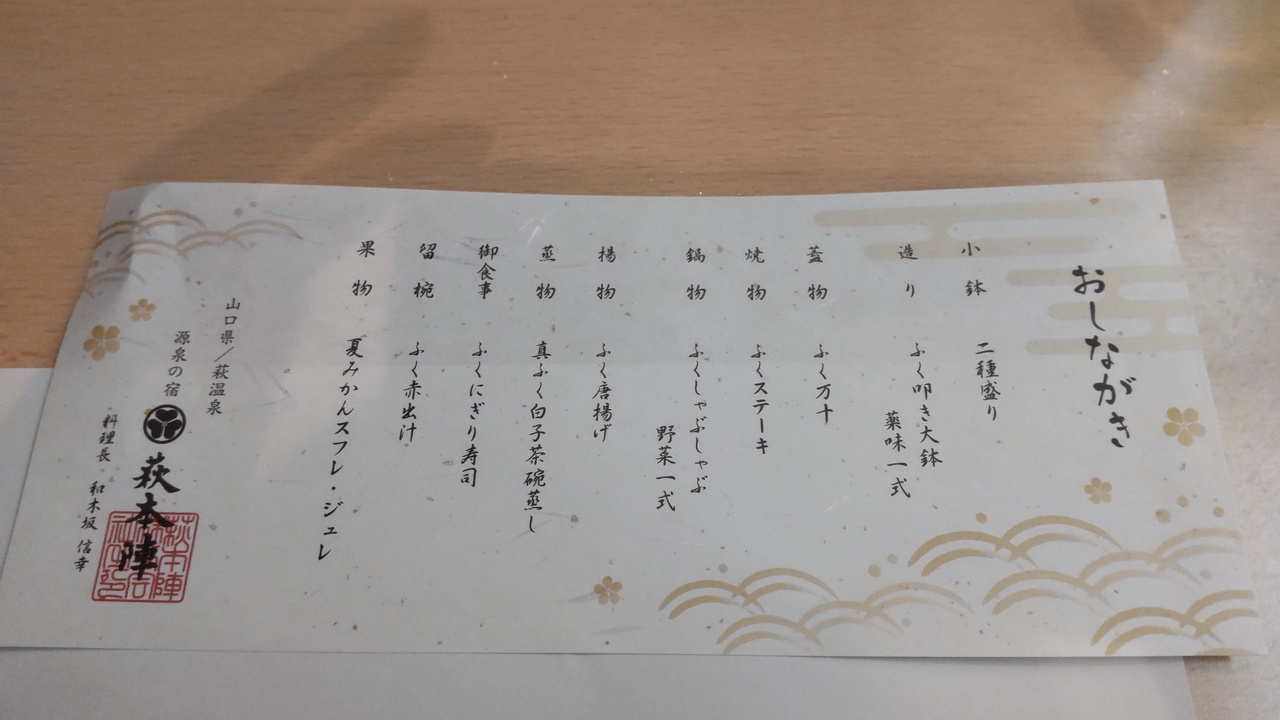 おしながき
小鉢 二種盛り
造り ふく叩き大鉢
薬味一式
蓋物 ふく万十
焼物 ふくステーキ
鍋物 ふくしゃぶしゃぶ
野菜一式
揚物 ふく唐揚げ
蒸物 真ふく白子茶碗蒸し
御食事 ふくにぎり寿司
留椀 ふく赤出汁
果物 夏みかんスフレ・ジュレ
山口県/萩温泉
源泉の宿
萩本陣
料理長 和木坂 信幸